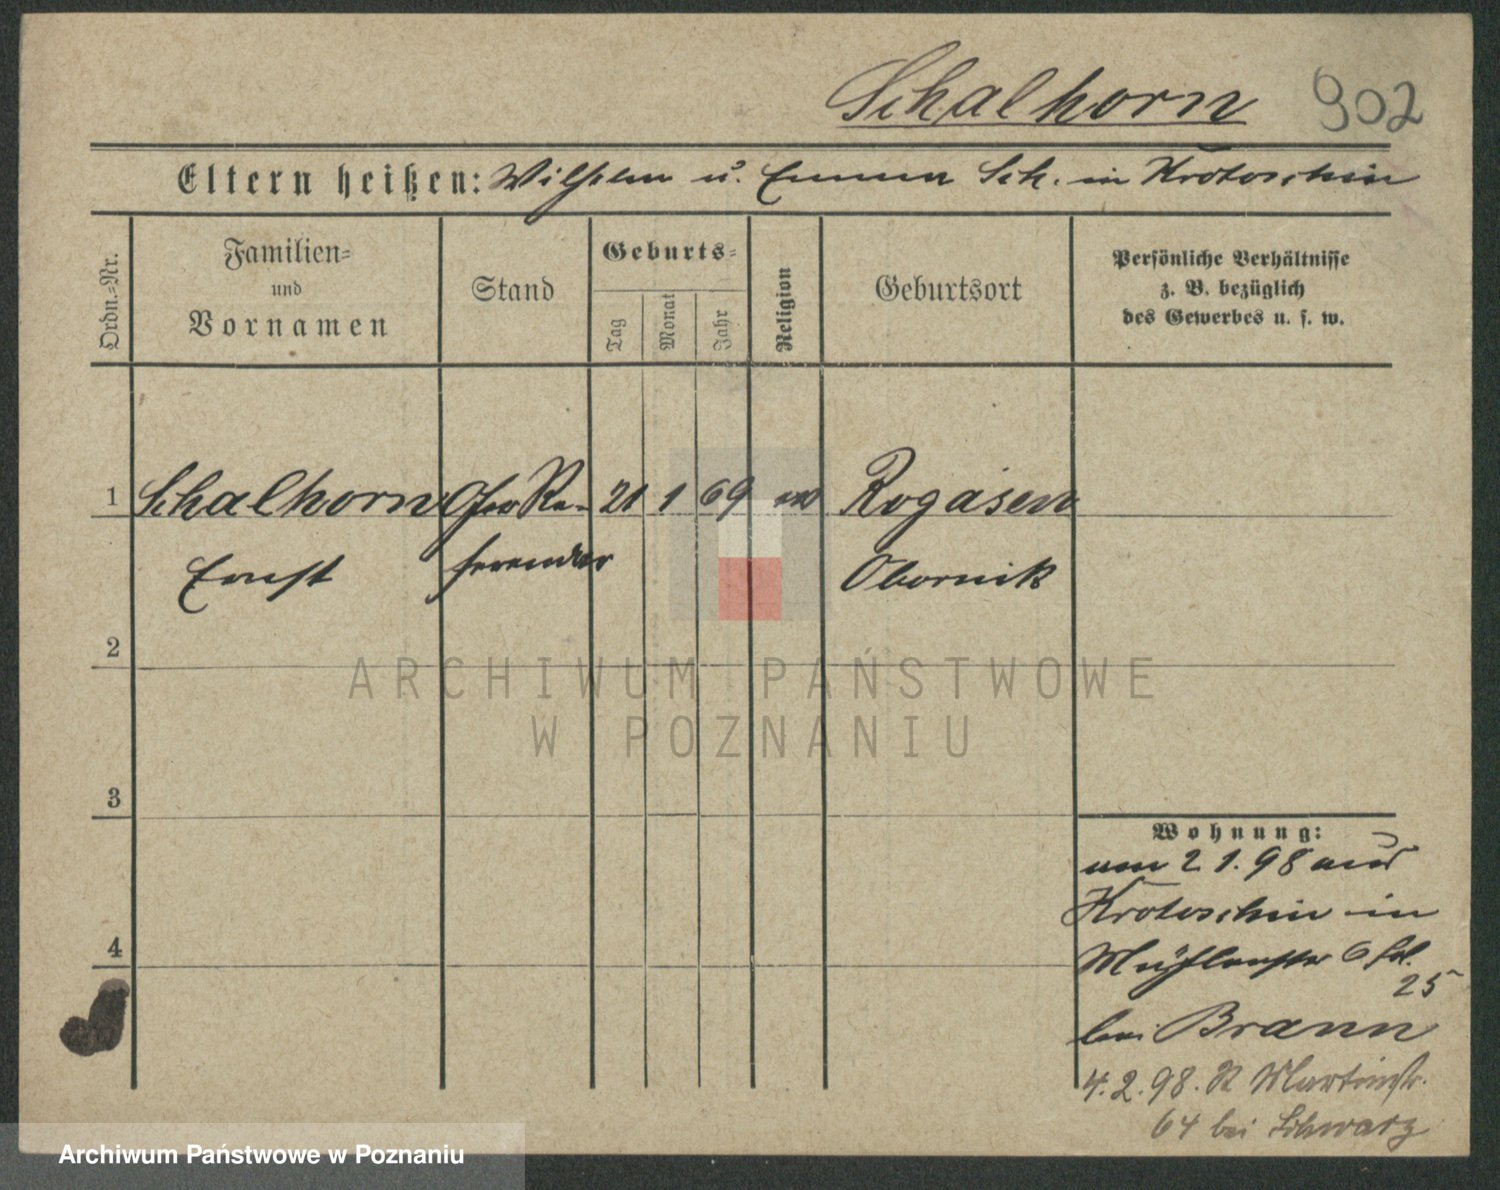 Schalhorn 902
Eltern heißen: Wilhelm u. Emma Sch. in Krotoschin
Ordn.-Nr.
Familien-
und
Vornamen
Stand
Geburts-
Tag
Monat
Jahr
Religion
Geburtsort
Persönliche Verhältnisse
z. B. bezüglich
des Gewerbes u. s. w.
1 Schalhorn Re- 21 1 69 Rogasen
Ernst ferendar Obornik
2
ARCHIWUM PAŃSTWOWE
W POZNANIU
3
Wohnung:
am 2 1. 98 aus
Krotoschin in
Mühlenstr 6
25
bei Brann
4. 2. 98. Martinstr.
64 bei Schwarz
4
Archiwum Państwowe w Poznaniu